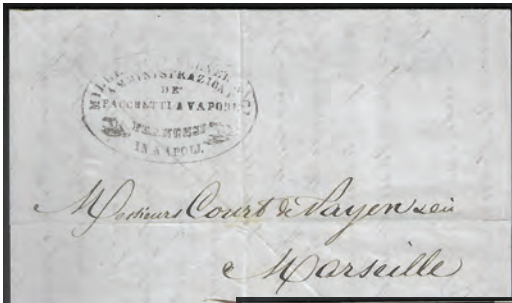 AMMINISTRAZIONE
DE'
PACCHETTI A VAPORE
FRANCESI
IN NAPOLI.
Messieurs Court de Payen
Marseille